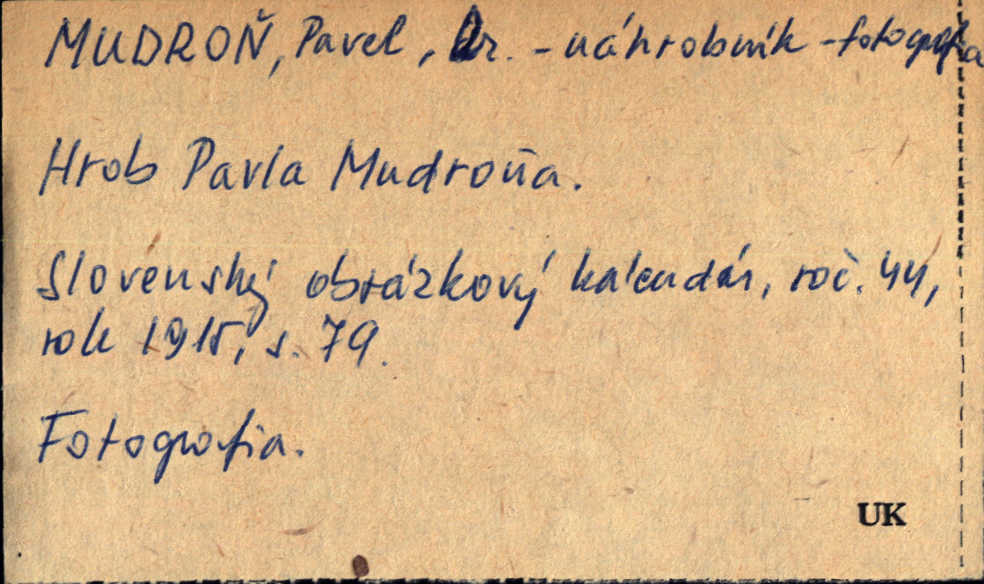 MUDROŇ, Pavel, Dr. - náhrobník - fotografia
Hrob Pavla Mudroňa.
Slovenský obrázkový kalendár, roč. 44,
rok 1915, s. 79.
Fotografia.
UK